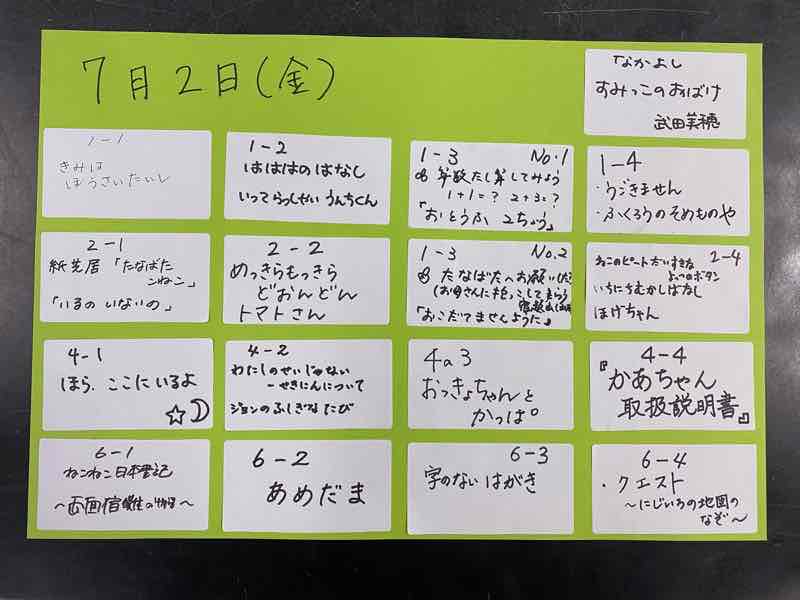 7月2日(金)
「なかよし
すみっこのおばけ
武田美穂
1-1
きみは
ほうさいたいし
1-2
はははのはなし
いってらっしゃい うんちくん
1-3 No.1
算数たし算してみよう
1+1=? 2+3=?
「おとうふ 2ちょう」
1-4
・うごきません
・ふくろうのそめものや
2-1
紙芝居「たなばた
こねこ」
「いるの いないの」
2-2
めっきらもっきら
どおんどん
トマトさん
1-3 No.2
たなばたへお願い
(お母さんに抱っこしてもらう
「おこだてませんように」
2-4
ねこのピート だいすきな
よっつのボタン
いちにちむかしばなし
ほげちゃん
4-1
ほら、ここにいるよ
☆☽
4-2
わたしのせいじゃない
-せきにんについて
ジョンのふしぎなたび
4の3
おっきょちゃんと
かっぱ
4-4
『かあちゃん
取扱説明書』
6-1
ねこねこ日本昔記
〜
6-2
あめだま
6-3
字のないはがき
6-4
・クエスト
〜にじいろの地図の
なぞ〜